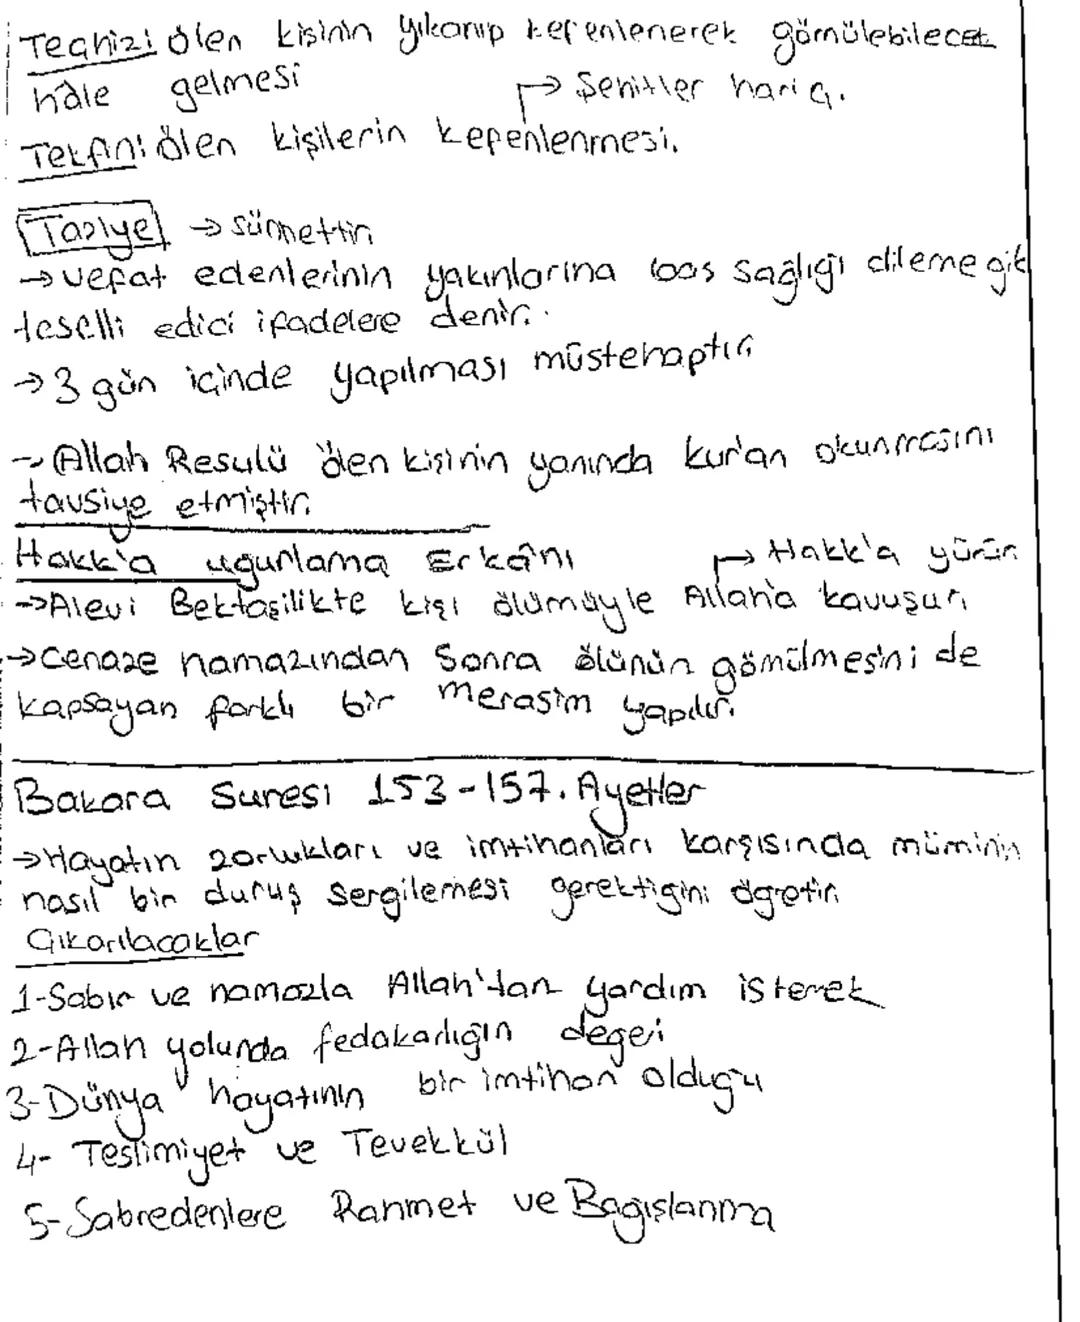 Teçhiz: ölen kişinin yıkanıp kefenlenerek gömülebilecek
hâle gelmesi
→ Şehitler hariç.
Tekfin: ölen kişilerin kefenlenmesi.
Taziye → sünnettir
→ vefat edenlerinin yakınlarına baş sağlığı dileme gibi
teselli edici ifadelere denir.
→ 3 gün içinde yapılması müstehaptır
→ Allah Resulü ölen kişinin yanında kur'an okunmasını
tavsiye etmiştir.
Hakk'a uğurlama Erkânı
→ Hakk'a yürür
→ Alevi Bektaşilikte kişi ölümüyle Allah'a kavuşur.
→ Cenaze namazından sonra ölünün gömülmesini de
kapsayan farklı bir merasim yapılır.
Bakara Suresi 153-157. Ayetler
→ Hayatın zorlukları ve imtihanları karşısında müminin
nasıl bir duruş sergilemesi gerektiğini öğretir.
Çıkarılacaklar
1-Sabır ve namazla Allah'tan yardım istemek
2-Allah yolunda fedakarlığın değeri
3-Dünya hayatının bir imtihan olduğu
4- Teslimiyet ve Tevekkül
5-Sabredenlere Rahmet ve Bağışlanma